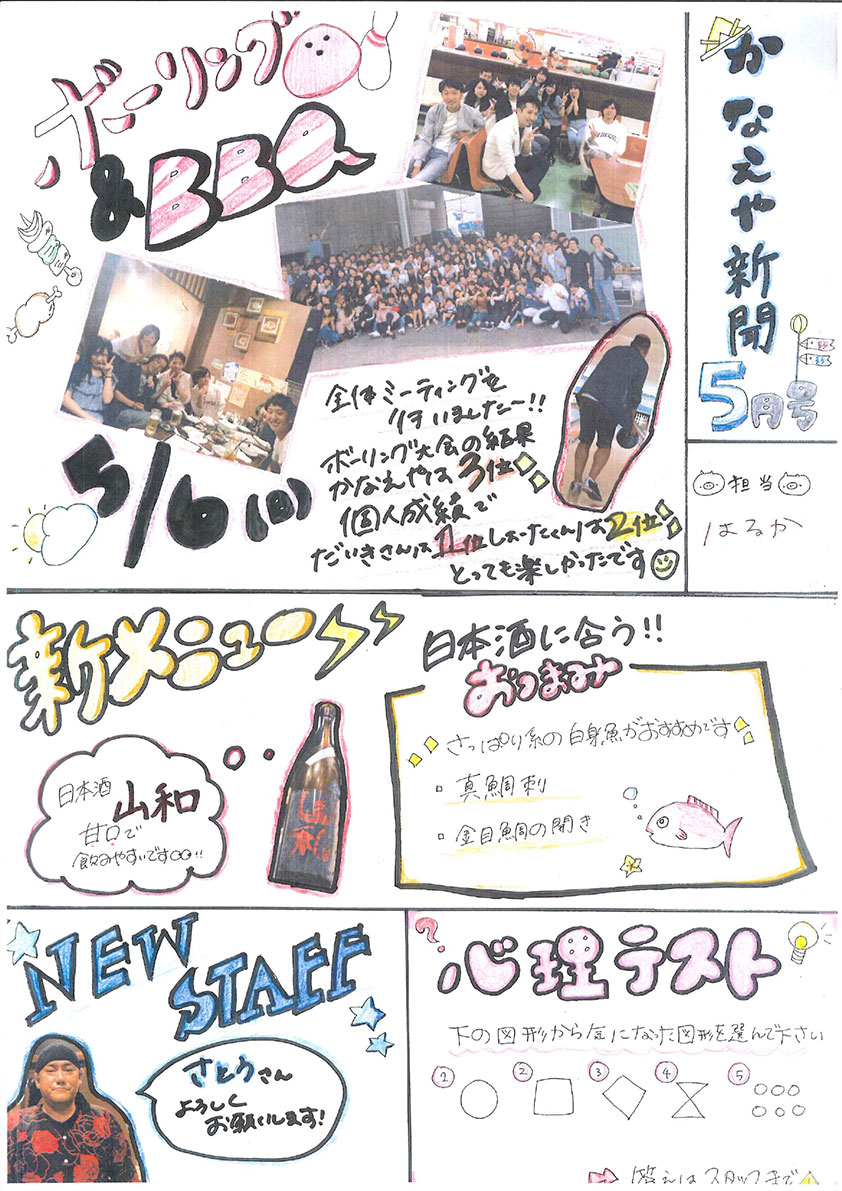 かなえや新聞
5月号
担当
はるか
ボーリング
&BBQ
5/6(日)
全体ミーティングを
行いましたー!!
ボーリング大会の結果
かなえやは3位
個人成績で
だいきさんは1位しょーたくんは2位
とっても楽しかったです
新メニュー
日本酒
山和
甘口で
飲みやすいです〇〇!!
山和
日本酒に合う!!
おつまみ
さっぱり系の白身魚がおすすめです
真鯛刺
金目鯛の開き
NEW
STAFF
さとうさん
よろしく
お願いします!
?
心理テスト
下の図形から気になった図形を選んで下さい
① ② ③ ④ ⑤
答えはスタッフまで